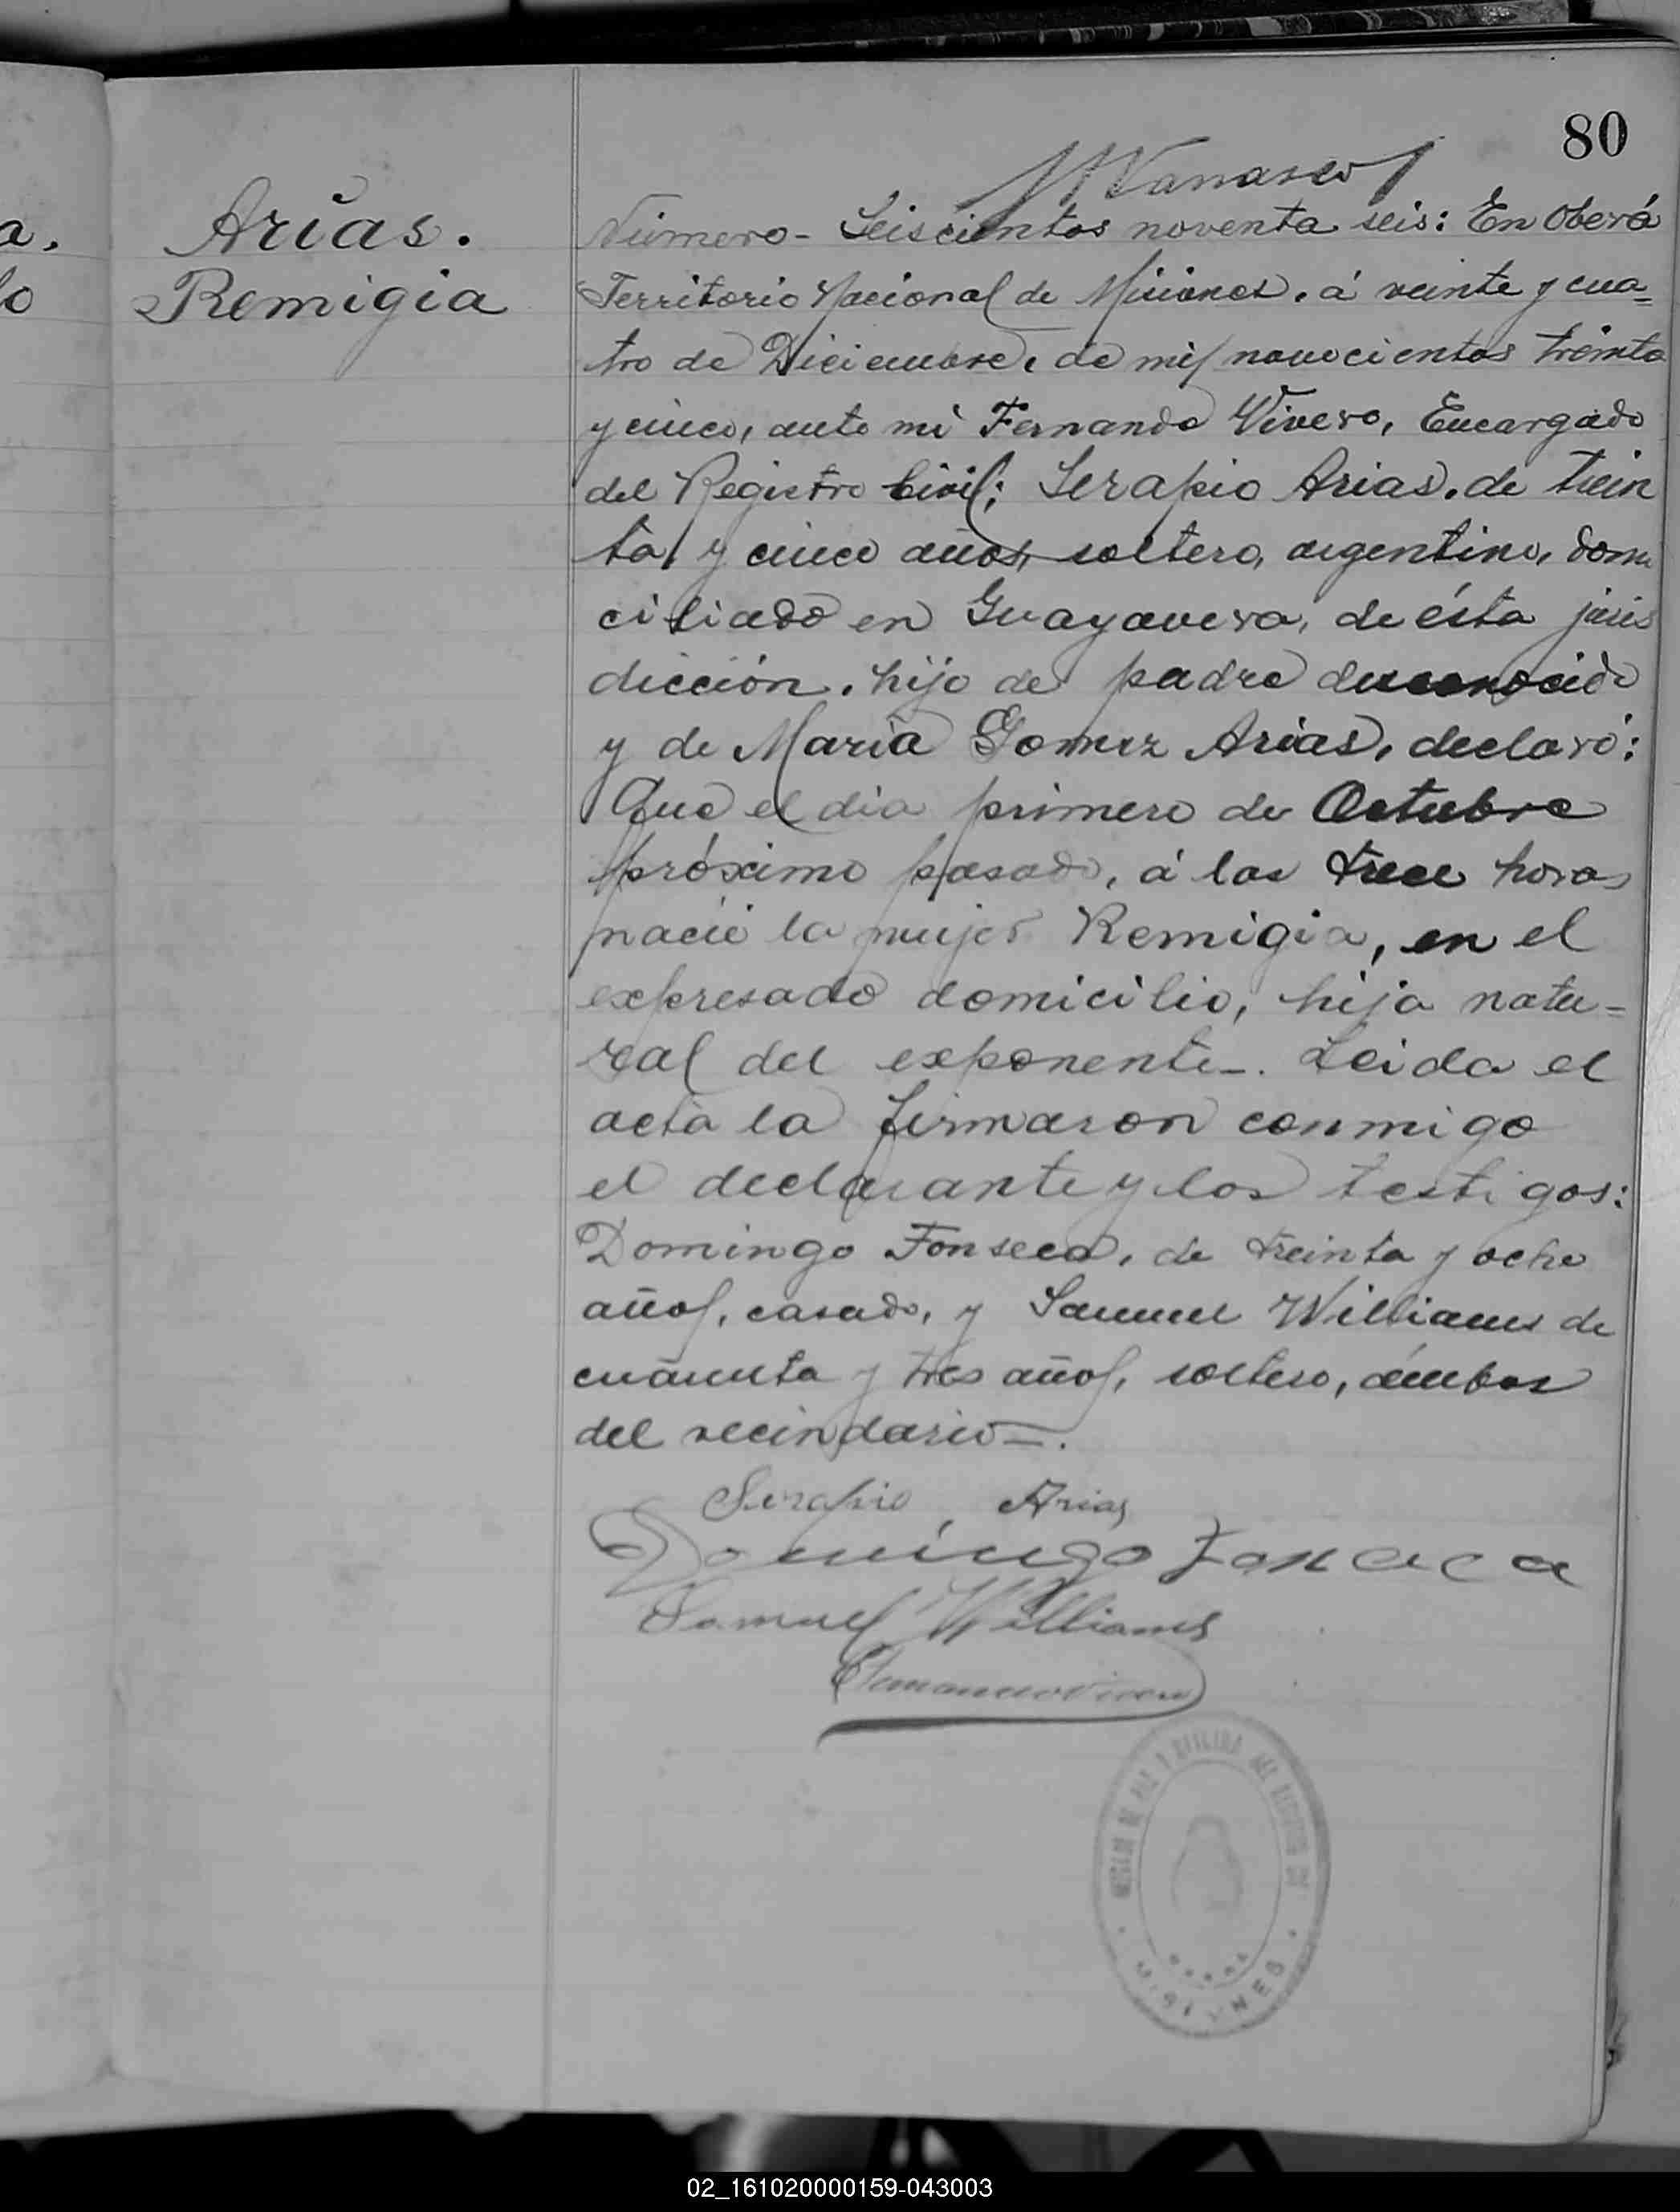 80
a.
Arias.
Remigia
Número - Seiscientos noventa seis: En Oberá
Territorio Nacional de Misiones. á veinte y cua=
tro de Diciembre, de mil novecientos treinta
y cinco, ante mi Fernando Vivero, Encargado
del Registro Civil; Serapio Arias. de trein
ta y cinco años, soltero, argentino, domi
ciliado en Guayavera, de ésta juris
dicción. hijo de padre desconocido
y de María Gomez Arias, declaró:
Que el dia primero de Octubre
próximo pasado, á las trece horas
nació la mujer Remigia, en el
expresado domicilio, hija natu=
ral del exponente-. Leida el
acta la firmaron conmigo
el declarante y los testigos:
Domingo Fonseca, de treinta y ocho
años, casado, y Samuel Williams de
cuarenta y tres años, soltero, ámbos
del vecindario-.
Serapio Arias
Domingo Fonseca
Samuel Williams
MISIONES
02_161020000159-043003